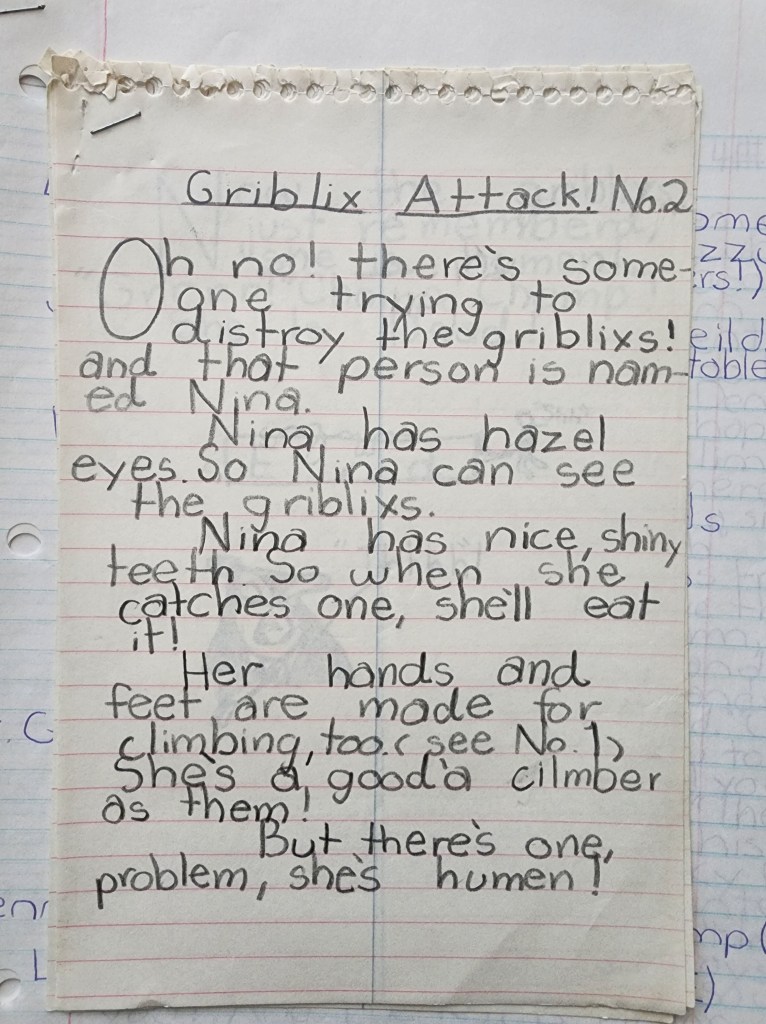 Griblix Attack! No.2
Oh no! there's some-
one trying to
distroy the griblixs!
and that person is nam-
ed Nina.
Nina has hazel
eyes. So Nina can see
the griblixs.
Nina has nice, shiny
teeth. So when she
catches one, she'll eat
it!
Her hands and
feet are made for
climbing, too. (see No. 1)
She's a good'a cilmber
as them!
But there's one,
problem, she's humen!